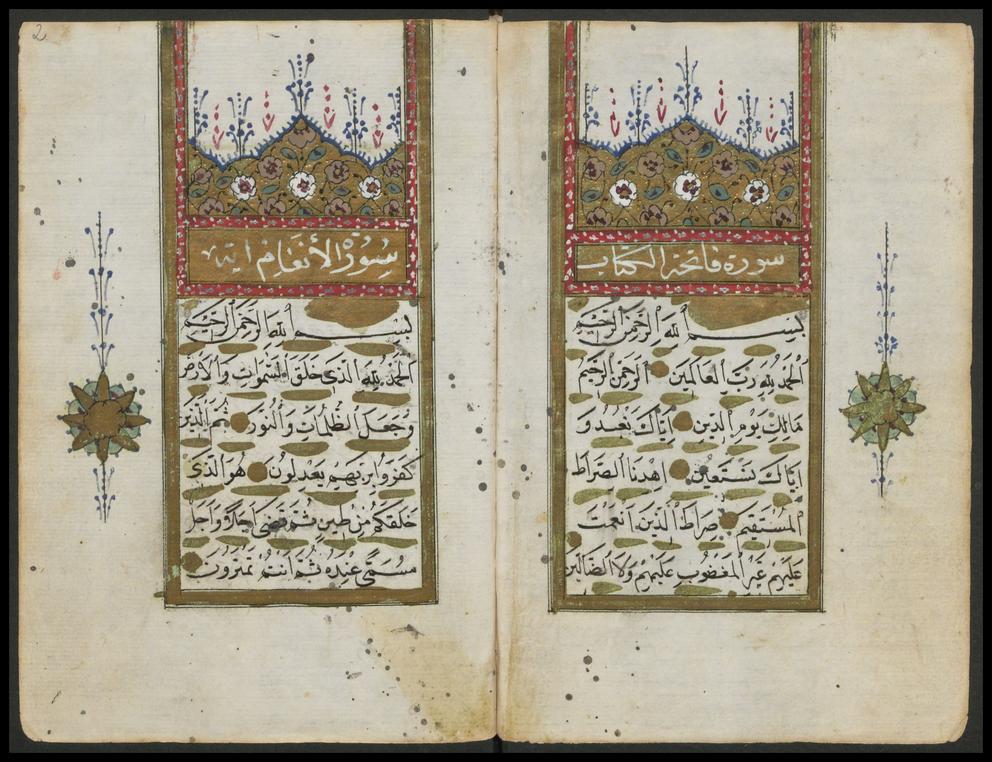 سورة فاتحة الكتاب
بِسْمِ ٱللَّهِ الرَّحْمَنِ الرَّحِيمِ
اَلْحَمْدُ لِلَّهِ رَبِّ الْعَالَمِينَ الرَّحْمَنِ الرَّحِيمِ
مَالِكِ يَوْمِ الدِّينِ اِيَّاكَ نَعْبُدُ وَ
اِيَّاكَ نَسْتَعِينُ اِهْدِنَا الصِّرَاطَ
الْمُسْتَقِيمَ صِرَاطَ الَّذِينَ اَنْعَمْتَ
عَلَيْهِمْ غَيْرِ الْمَغْضُوبِ عَلَيْهِمْ وَلَا الضَّالِّينَ
سُورَةُ الأَنْعَامِ
بِسْمِ ٱللَّهِ الرَّحْمَنِ الرَّحِيمِ
اَلْحَمْدُ لِلَّهِ الَّذِي خَلَقَ السَّمَوَاتِ وَالْاَرْضَ
وَجَعَلَ الظُّلُمَاتِ وَالنُّورَ ثُمَّ الَّذِينَ
كَفَرُوا بِرَبِّهِمْ يَعْدِلُونَ هُوَ الَّذِي
خَلَقَكُمْ مِنْ طِينٍ ثُمَّ قَضَى اَجَلًا وَاَجَلٌ
مُسَمًّى عِنْدَهُ ثُمَّ اَنْتُمْ تَمْتَرُونَ
2